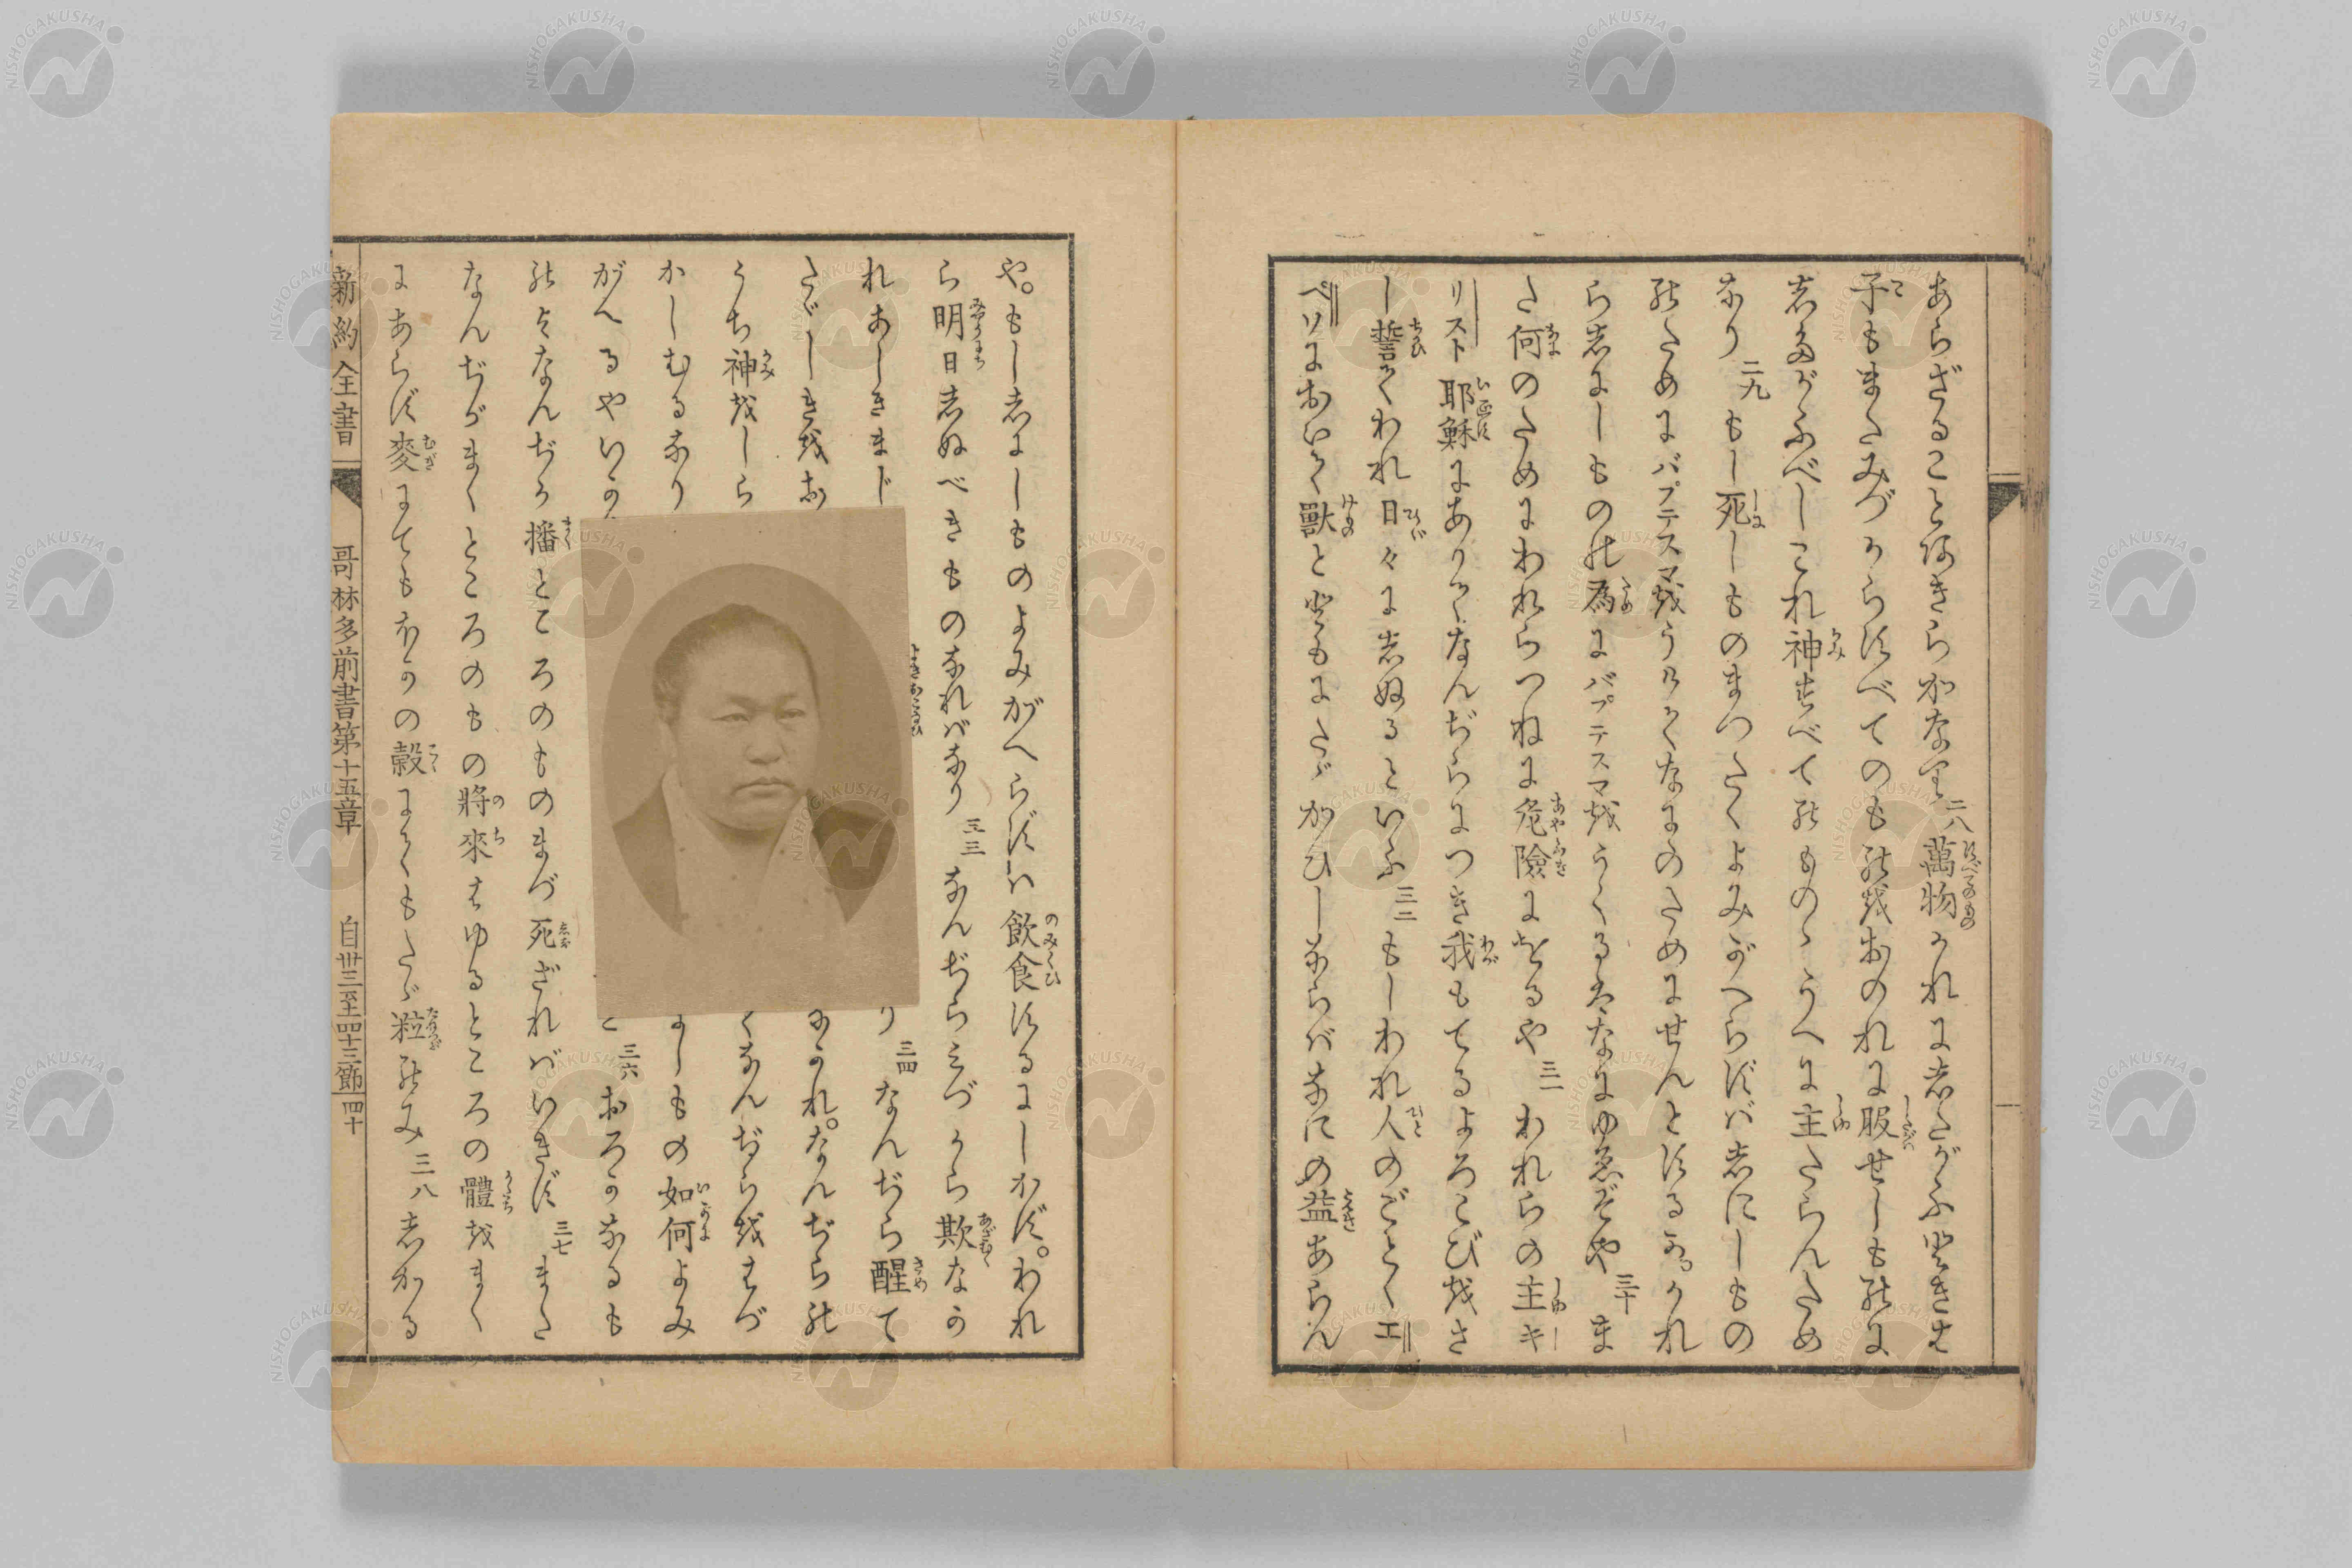 あらざることあきらかなり 二八 萬物かれにしたがふときは
子もまたみづからすべてのものをおのれに服せしものに
したがふべしこれ神すべてのものゝうへに主たらんため
なり 二九 もし死しものまつたくよみがへらずばしにしもの
のためにバプテスマをうけてなにのためにせんとするか。かれ
らしにしものの為にバプテスマをうくるはなにゆゑぞや 三十 ま
た何のためにわれらつねに危險にをるや 三一 われらの主キ
リスト耶穌にありてなんぢらにつき我もてるよろこびをさ
し誓てわれ日々にしぬるといふ 三二 もしわれ人のごとくエ
ペソにおいて獸とともにたゞかひしならばなにの益あらん
や。もししにしものよみがへらずハ飲食するにしかず。われ
ら明日しぬべきものなればなり 三三 なんぢらみづから欺なか
れあしきまじ り 三四 なんぢら醒て
たゞしきをお なかれ。なんぢらの
うち神をしら くなんぢらをはづ
かしむるなり にしもの如何よみ
がへるやいか と 三六 おろかなるも
のよなんぢか播ところのものまづ死ざればいきず 三七 また
なんぢがまくところのもの將來はゆるところの體をまく
にあらず麥にてもほかの穀にてもたゞ粒のみ 三八 しかる
新約全書 哥林多前書第十五章 自卅三至四十三節 四十
NISHOGAKUSHA